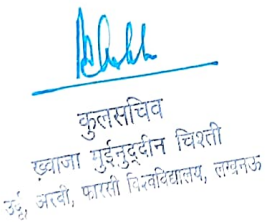 कुलसचिव
ख़्वाजा मुईनुद्दीन चिश्ती
उर्दू, अरबी, फारसी विश्वविद्यालय, लखनऊ